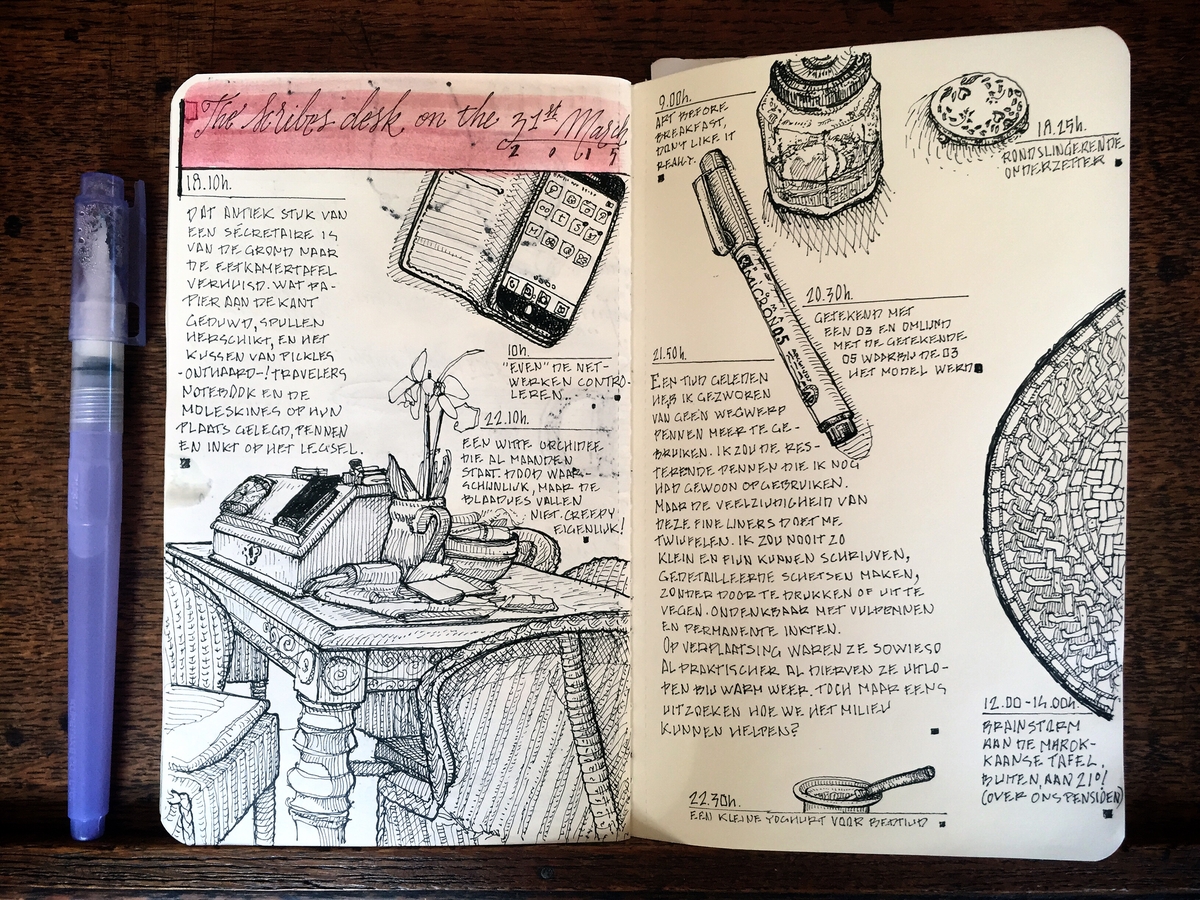 The Scribes desk on the 31st March
2015
18.10h.
DAT ANTIEK STUK VAN
EEN SÉCRETAIRE IS
VAN DE GROND NAAR
DE EETKAMERTAFEL
VERHUISD. WAT PA-
PIER AAN DE KANT
GEDUWD, SPULLEN
HERSCHIKT, EN HET
KUSSEN VAN PICKLES
-ONTHAARD-! TRAVELERS
NOTEBOOK EN DE
MOLESKINES OP HUN
PLAATS GELEGD, PENNEN
EN INKT OP HET LEGSEL.
10h.
"EVEN" DE NET-
WERKEN CONTRO-
LEREN..
22.10h.
EEN WITTE ORCHIDEE
DIE AL MAANDEN
STAAT. DOOD WAAR-
SCHIJNLIJK, MAAR DE
BLAADJES VALLEN
NIET. CREEPY
EIGENLIJK!
9.00h.
ART BEFORE
BREAKFAST,
DON'T LIKE IT
REALLY.
18.15h.
RONDSLINGERENDE
ONDERZETTER
20.30h.
GETEKEND MET
EEN 03 EN OMLIJND
MET DE GETEKENDE
05 WAARBIJ DE 03
HET MODEL WERD
MICRON 05
21.50h.
EEN TIJD GELEDEN
HEB IK GEZWOREN
VAN GEEN WEGWERP
PENNEN MEER TE GE-
BRUIKEN. IK ZOU DE RES-
TERENDE PENNEN DIE IK NOG
HAD GEWOON OPGEBRUIKEN.
MAAR DE VEELZIJDIGHEID VAN
DEZE FINE LINERS DOET ME
TWIJFELEN. IK ZOU NOOIT ZO
KLEIN EN FIJN KUNNEN SCHRIJVEN,
GEDETAILLEERDE SCHETSEN MAKEN,
ZONDER DOOR TE DRUKKEN OF UIT TE
VEGEN. ONDENKBAAR MET VULPENNEN
EN PERMANENTE INKTEN.
OP VERPLAATSING WAREN ZE SOWIESO
AL PRAKTISCHER AL DIERVEN ZE UITLO-
PEN BIJ WARM WEER. TOCH MAAR EENS
UITZOEKEN HOE WE HET MILIEU
KUNNEN HELPEN?
12.00-14.00h.
BRAINSTORM
AAN DE MAROK-
KAANSE TAFEL.
BUITEN, AAN 21°!
(OVER ONS PENSIOEN)
22.30h.
EEN KLEINE YOGHURT VOOR BEDTIJD